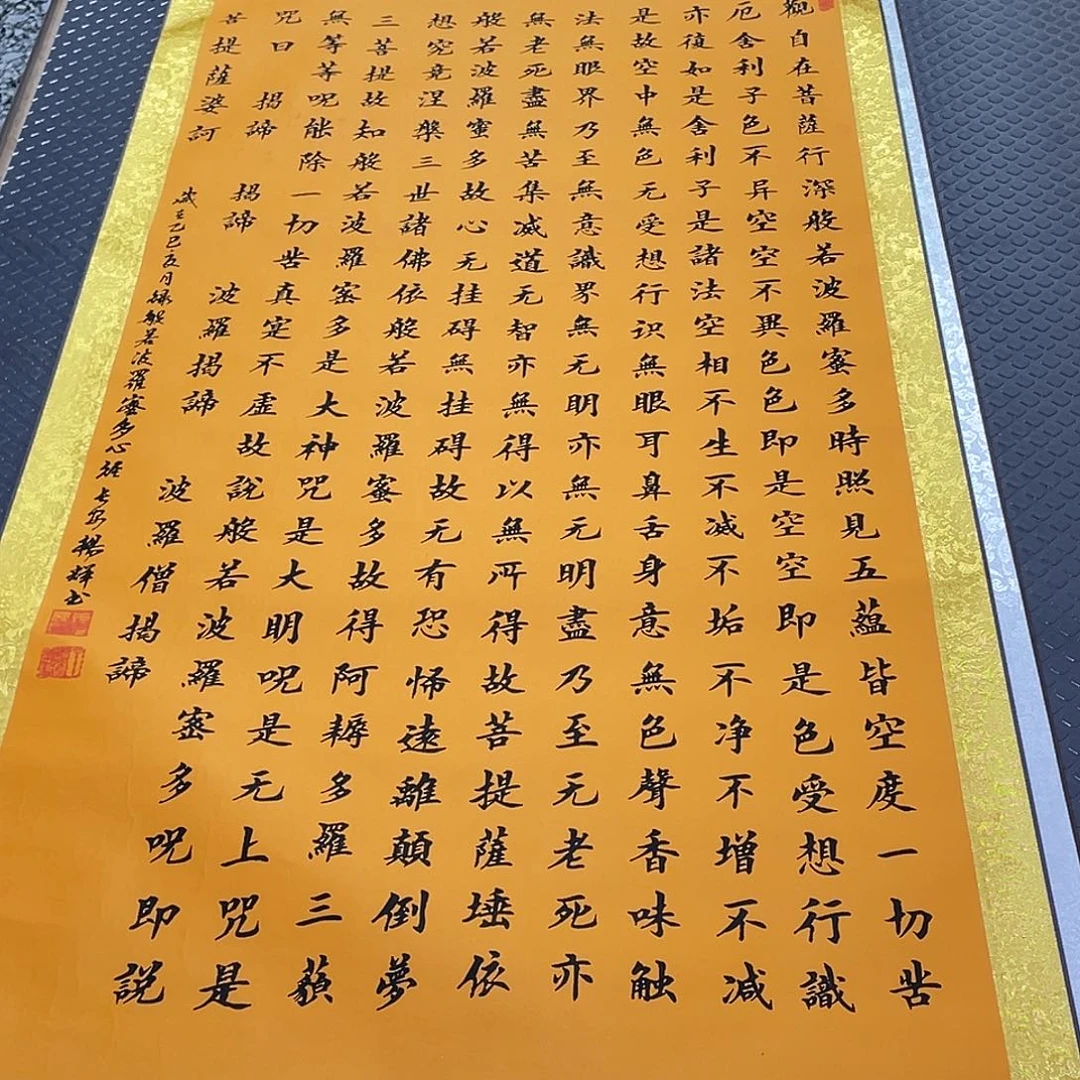 觀自在菩薩行深般若波羅蜜多時照見五蘊皆空度一切苦
厄舍利子色不异空空不異色色即是空空即是色受想行識
亦復如是舍利子是諸法空相不生不滅不垢不净不增不减
是故空中無色无受想行识無眼耳鼻舌身意無色聲香味触
法無眼界乃至無意識界無无明亦無无明盡乃至无老死亦
無老死盡無苦集滅道无智亦無得以無所得故菩提薩埵依
般若波羅蜜多故心无挂碍無挂碍故无有恐怖遠離顛倒夢
想究竟涅槃三世諸佛依般若波羅蜜多故得阿耨多羅三藐
三菩提故知般若波羅蜜多是大神咒是大明咒是无上咒是
無等等呪能除一切苦真寔不虚故說般若波羅蜜多呪即說
咒曰 揭諦 揭諦 波羅揭諦 波羅僧揭諦
菩提薩婆訶
歲在乙巳亥月録般若波羅蜜多心經 長安楊輝书